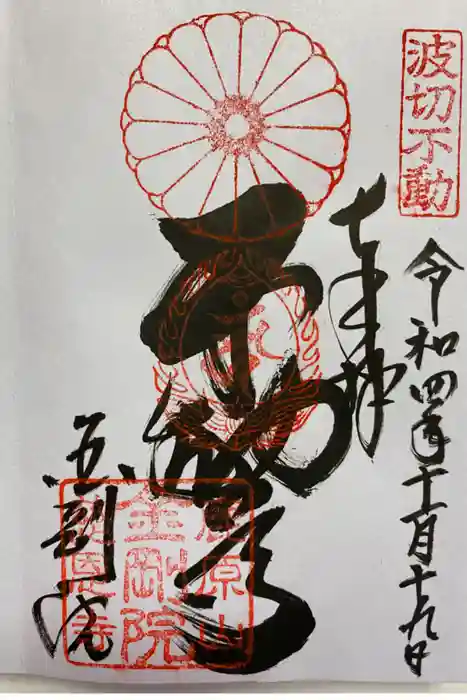 波切不動
令和四年十一月十九日
奉拝
不動尊
鹿原山
金剛院
慈恩寺
金剛院